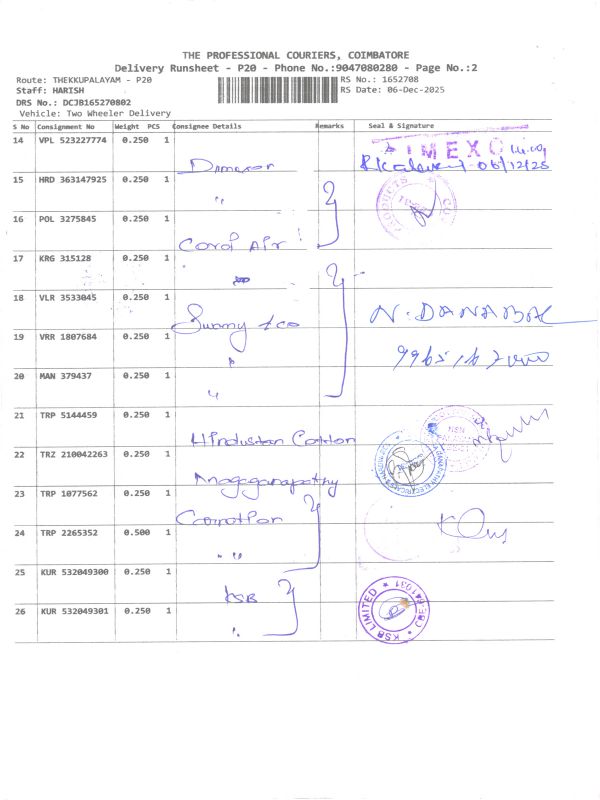 THE PROFESSIONAL COURIERS, COIMBATORE
Delivery Runsheet - P20 - Phone No.:9047080280 - Page No.:2
Route: THEKKUPALAYAM - P20 RS No.: 1652708
Staff: HARISH RS Date: 06-Dec-2025
DRS No.: DCJB165270802
Vehicle: Two Wheeler Delivery
S No Consignment No Weight PCS Consignee Details Remarks Seal & Signature
14 VPL 523227774 0.250 1 IMEXC
06/12/25
15 HRD 363147925 0.250 1 "
PRODUCTS
16 POL 3275845 0.250 1
Coral Air
17 KRG 315128 0.250 1
18 VLR 3533045 0.250 1 N. DANABAL
Swamy & co
19 VRR 1807684 0.250 1 "
20 MAN 379437 0.250 1 "
21 TRP 5144459 0.250 1
Hindustan Cotton
22 TRZ 210042263 0.250 1
Anagaganapathy
23 TRP 1077562 0.250 1
24 TRP 2265352 0.500 1
" "
25 KUR 532049300 0.250 1
KSB
26 KUR 532049301 0.250 1 "
KSB LIMITED * CBE-641031 *